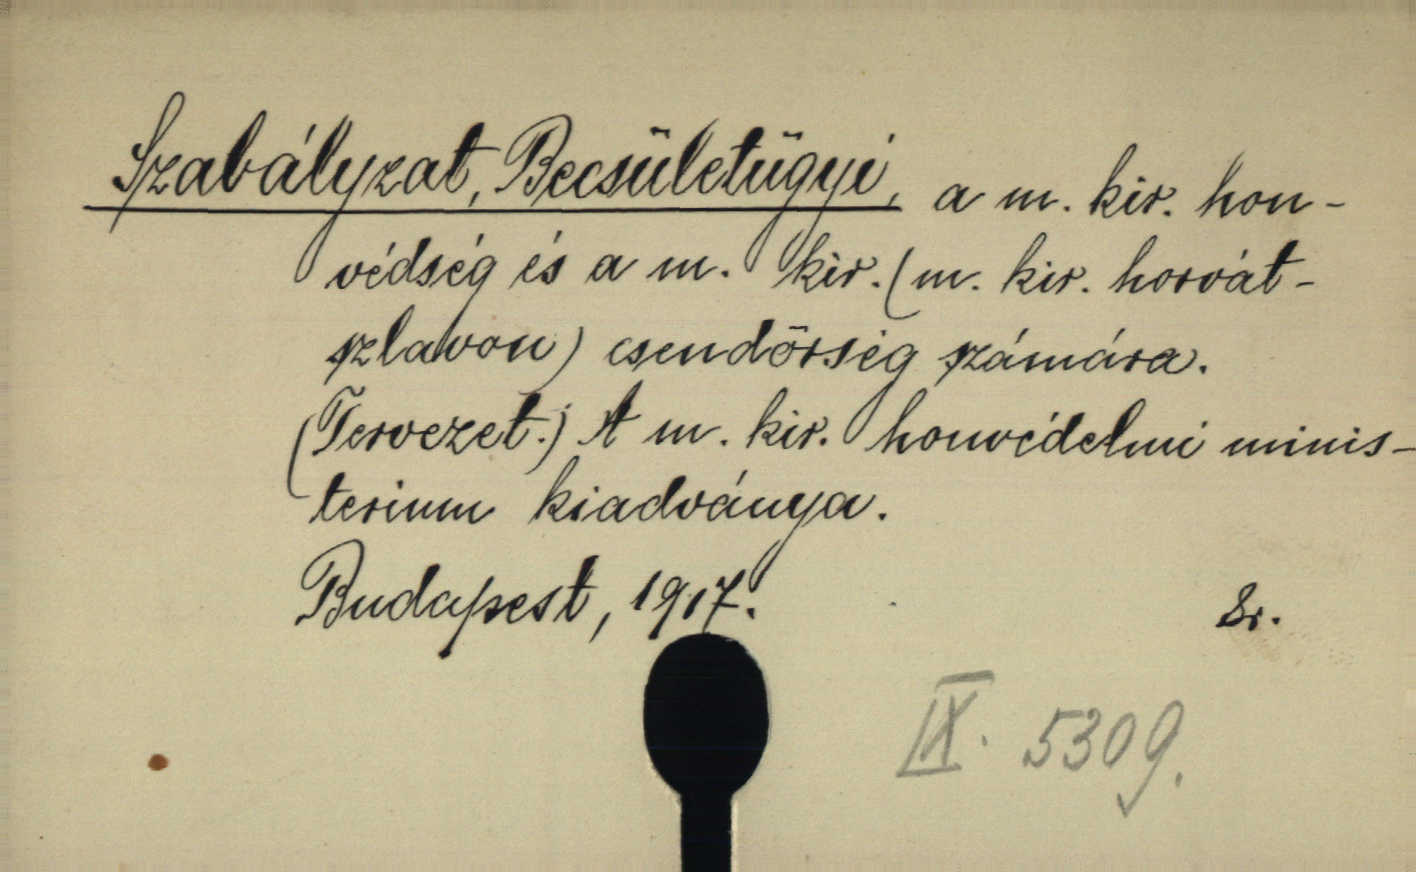 Szabályzat, Becsületügyi, a m. kir. hon-
védség és a m. kir. (m. kir. horvát-
szlavon) csendőrség számára.
(Tervezet.) A m. kir. honvédelmi minis-
terium kiadványa.
Budapest, 1917.
8r.
IX. 5309.